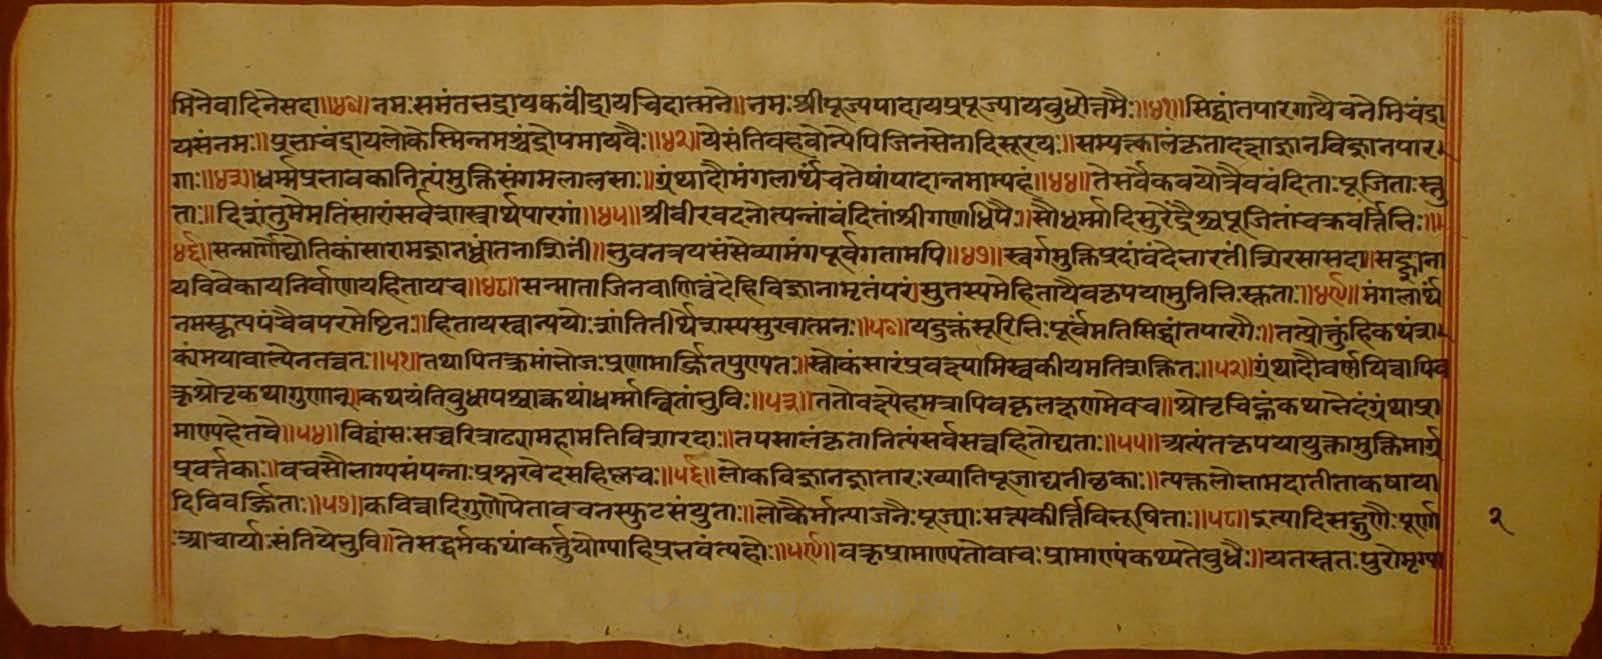 मिनेवादिनेसदा॥४०॥नमःसमंतभद्रायकवींद्रायचिदात्मने॥नमःश्रीपूज्यपादायप्रपूज्यायबुधोत्तमैः॥४१॥सिद्धांतपारगायैवनेमिचंद्रा
यसंनमः॥प्रभाचंद्रायलोकेस्मिन्नमश्चंद्रोपमायवैः॥४२॥येसंतिवहवोन्येपिजिनसेनादिसूरयः॥सम्यक्त्कालंकृतादह्माज्ञानविज्ञानपार
गाः॥४३॥धर्म्मप्रभावकानित्यंमुक्तिसंगमलालसाः॥ग्रंथादौमंगलार्थंचतेषांपादान्नमाम्यहं॥४४॥तेसर्वेकवयोत्रैववंदिताःपूजिताःस्तु
ताः॥दिशंतुमेमतिंसारांसर्वशास्त्रार्थपारगां॥४५॥श्रीवीरवदनोत्पन्नांवंदितांश्रीगणाधिपैः॥सौधर्म्मादिसुरेंद्रैश्चपूजितांचक्रवर्त्तिभिः॥
४६॥सन्मार्गोद्योतिकांसारामज्ञानध्वांतनाशिनीं॥भुवनत्रयसंसेव्यामंगपूर्वगतामपि॥४७॥स्वर्गमुक्तिप्रदांवंदेभारतींशिरसासदा॥सद्ज्ञाना
यविवेकायनिर्वाणायहितायच॥४८॥सन्माताजिनवाणित्वंदेहिविज्ञानामृतंपरं॥सुतस्यमेहितायैवकृपयामुनिभिःस्कृता॥४९॥मंगलार्थं
नमस्कृत्यपंचैवपरमेष्टिनः॥हितायस्वान्ययोःशांतितीर्थेशस्यसुखात्मनः॥५०॥यदुक्तंसूरिभिःपूर्वंमतिसिद्धांतपारगैः॥तत्प्रोक्तुंहिकथंश
क्यंमयावाल्येनतत्त्वतः॥५१॥तथापितत्क्रमांभोजःप्रणामार्ज्जितपुण्यतः॥स्तोकंसारंप्रवक्ष्यामिस्वकीयमतिशक्तितः॥५२॥ग्रंथादौवर्णयित्वापिव
क्तृश्रोतृकथागुणान्॥कथयंतिबुधापश्चात्कथांधर्म्मान्वितांभुविः॥५३॥ततोवक्ष्येहमत्रापिवक्तृलक्षणमेवच॥श्रोतृचिह्नंकथाभेदंग्रंथाप्रा
माण्यहेतवै॥५४॥विद्वांसःसच्चरित्राढ्यामहामतिविशारदाः॥तपसालंकृतानित्यंसर्वसत्त्वहितोद्यताः॥५५॥अत्यंतकृपयायुक्तामुक्तिमार्ग
प्रवर्त्तकाः॥वचसौभाग्यसंपन्नाःप्रश्नखेदसहिष्णवः॥५६॥लोकविज्ञानज्ञातारःख्यातिपूजाद्यनीछकाः॥त्यक्तलोभामदातीताकषाया
दिविवर्ज्जिताः॥५७॥कवित्वादिगुणोपेतावचनस्फुटसंयुताः॥लोकैर्मान्याजनैःपूज्याःसत्मकीर्त्तिविभूषिताः॥५८॥इत्यादिसद्गुणैःपूर्णा
आचार्याःसंतियेभुवि॥तेसद्धर्मकथांकर्त्तुंयोग्याहिप्रभवंत्यहोः॥५९॥वक्तृप्रामाण्यतोवाचःप्रामाण्यंकथ्यतेबुधैः॥यतस्ततःपुरोमृग्या
२